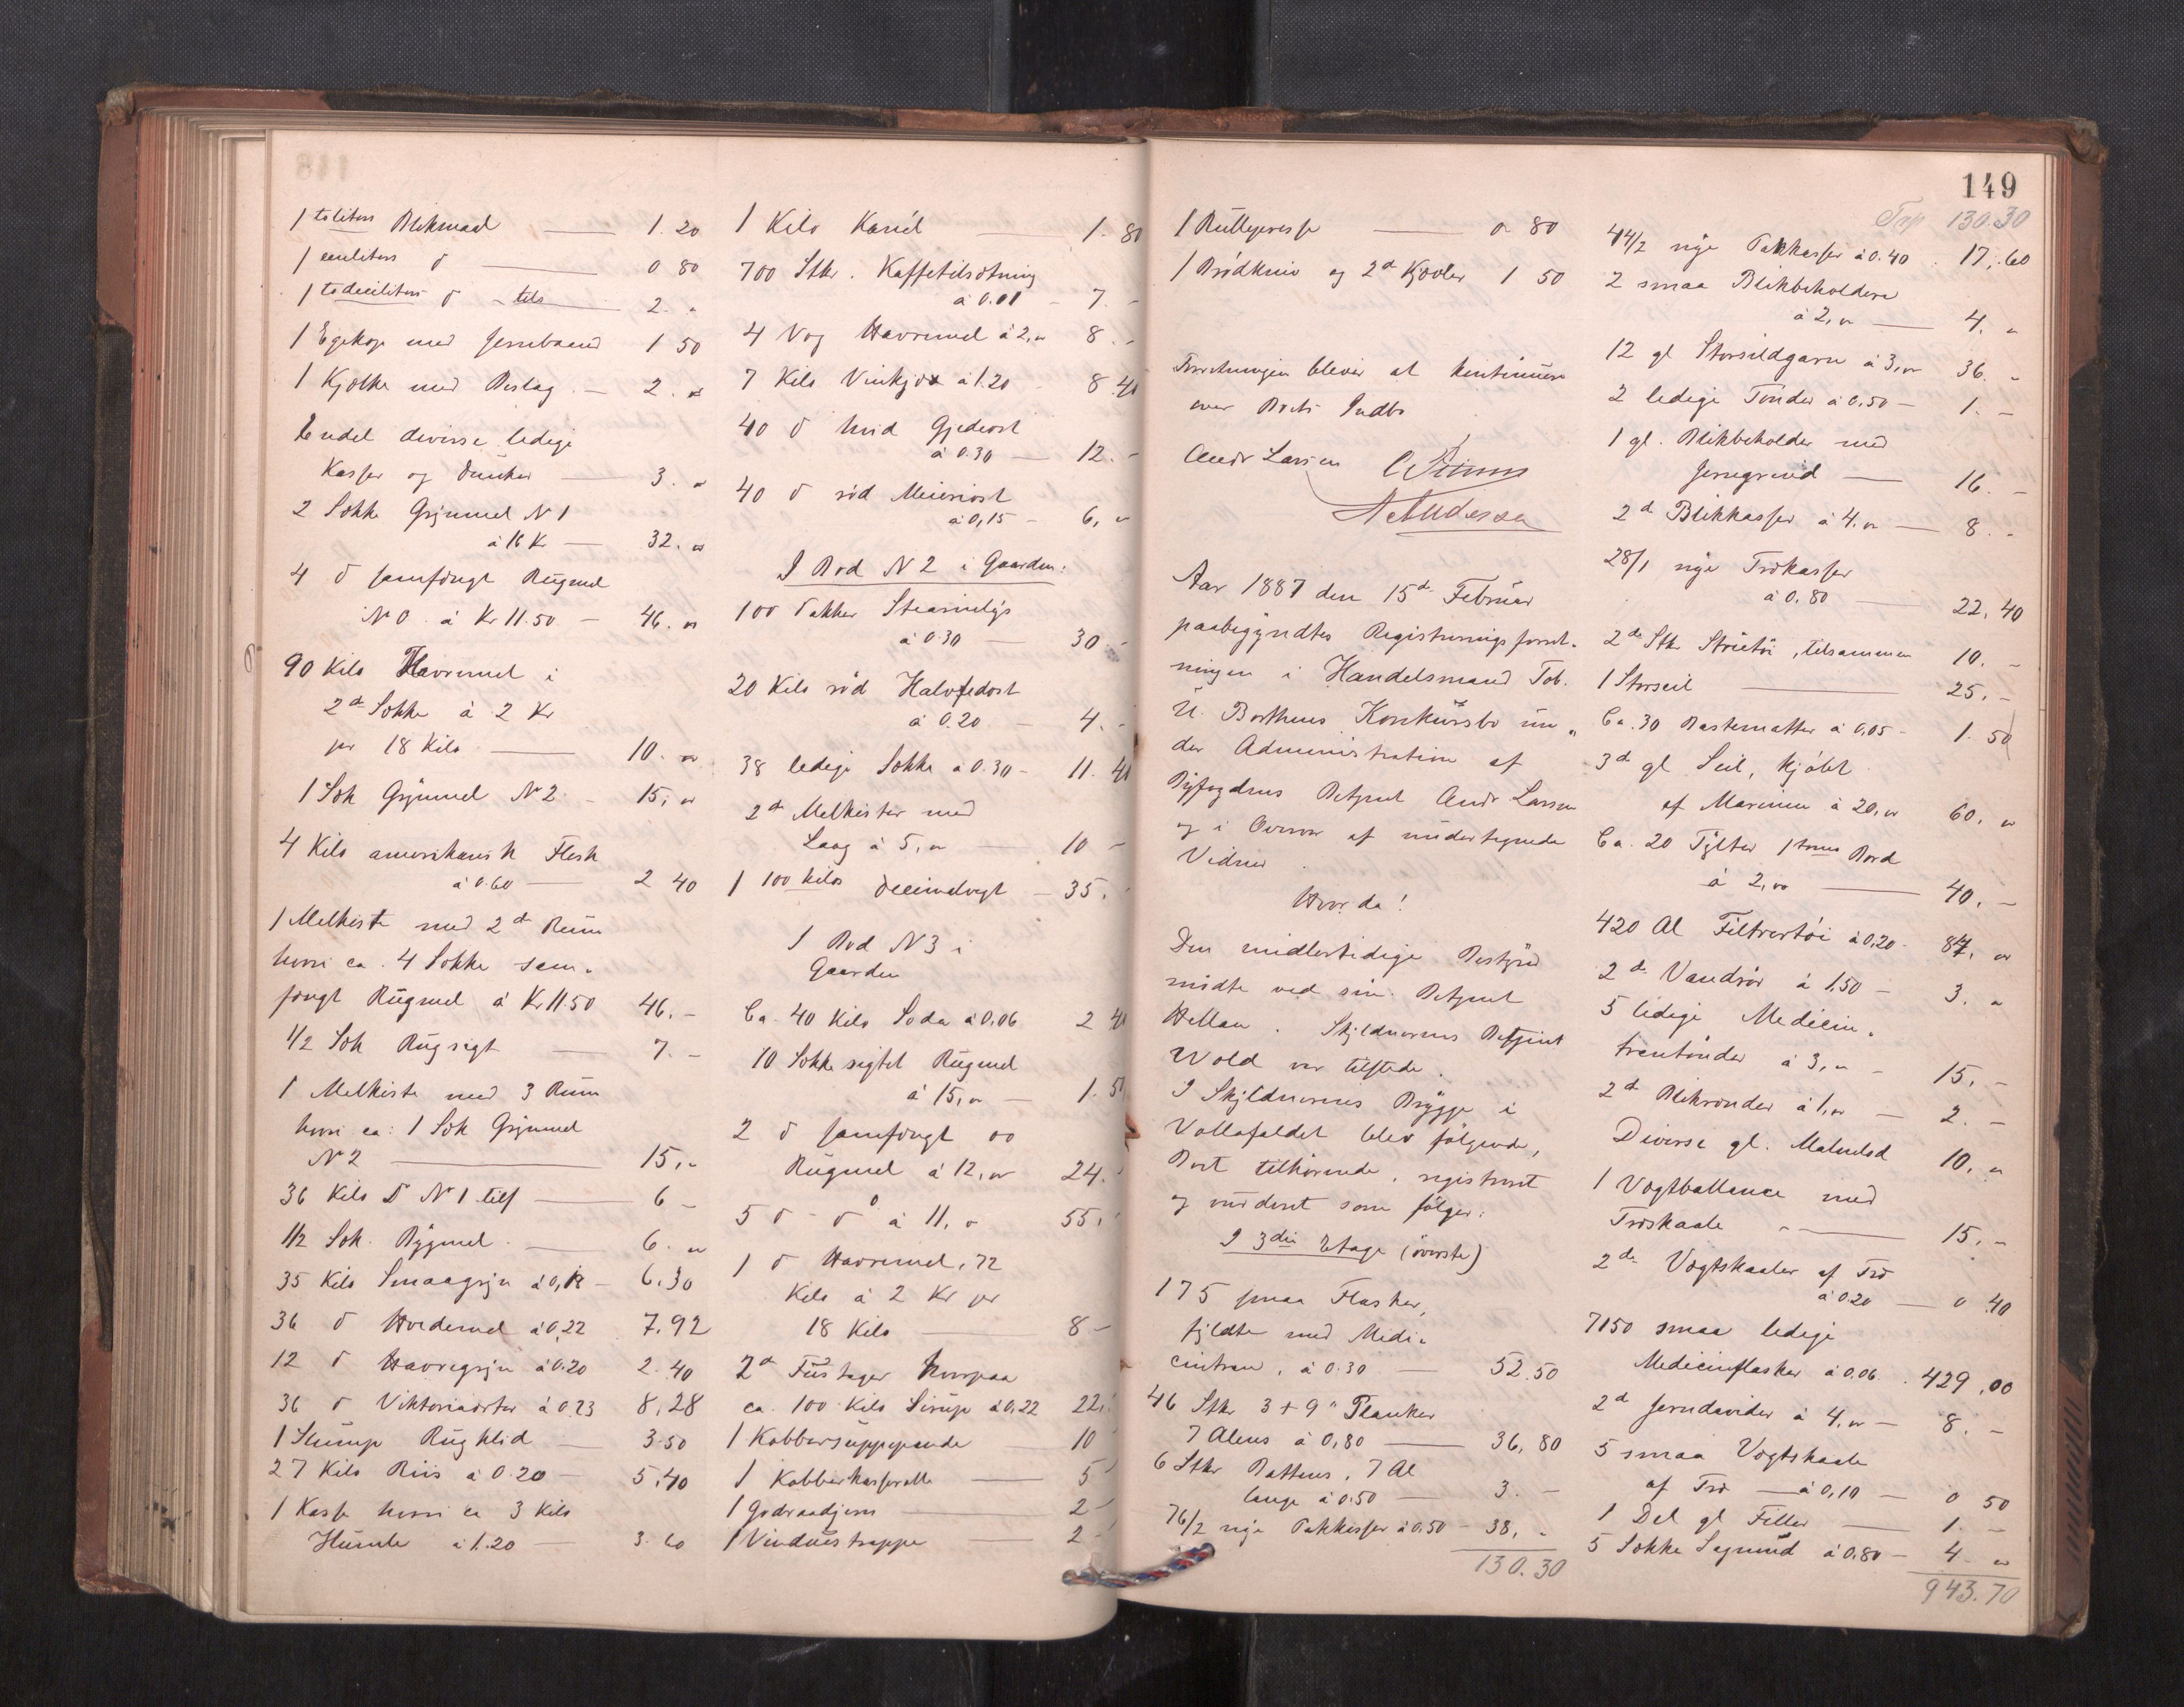 1 toliters Blikmaal — 1. 20
1 eenliters d — 0 80
1 todeciliters d — tils — 2. "
1 Egekop med Jernbaand 1 50
1 Kjælke med Beslag. — 2. "
Endel diverse ledige
Kasser og Dunker — 3. "
2 Sække Grynmel N 1
à 16 Kr — 32. "
4 d samfængt Rugmel
N 0 à Kr 11.50 — 46. "
90 Kilo Havremel i
2d Sække à 2 Kr
pr 18 Kilo — 10. "
1 Sæk Grynmel N 2 — 15, "
4 Kilo amerikansk Flesk
à 0.60 — 2 40
1 Melkiste med 2d Rum
hvori ca. 4 Sække sam-
fængt Rugmel à Kr 11.50 46. -
1/2 Sæk Rugsigt — 7. -
1 Melkiste med 3 Rum
hvori ca: 1 Sæk Grynmel
N 2 — 15, "
36 Kilo D N 1 tils — 6 -
1/2 Sæk. Bygmel. — 6. "
35 Kilo Smaagryn à 0,18 — 6.30
36 d Hvedemel à 0,22 7.92
12 d Havregryn à 0.20 2.40
36 d Viktoriaærter à 0.23 8,28
1 Slump Rugklid — 3.50
27 Kilo Riis à 0.20 — 5.40
1 Kasse hvori ca 3 Kilo
Humle à 1.20 — 3.60
1 Kilo Kanel — 1. 80
700 Stkr. Kaffetilsætning
à 0.01 — 7. -
4 Vog Havremel à 2, " 8. -
7 Kilo Vinkjæx à 1.20 — 8.40
40 d hvid Gjedeost
à 0.30 — 12. -
40 d rød Meieriost
à 0,15 — 6, "
I Bod N 2 i Gaarden:
100 Pakker Stearinlys
à 0.30 — 30. -
20 Kilo rød Halvfedost
à 0.20 — 4. -
38 ledige Sække à 0.30 — 11. 40
2d Melkister med
Laag à 5, " — 10 -
1 100 kilos Decimalvegt — 35. -
I Bod N 3 i
Gaarden
Ca. 40 Kilo Soda à 0,06 2 40
10 Sække sigtet Rugmel
à 15, " — 1.50
2 d samfængt 00
Rugmel à 12, " 24. -
5 d - d 0 à 11, " 55. -
1 d Havremel, 72
Kilo à 2 Kr pr
18 Kilo — 8 -
2d Fustager hvorpaa
ca. 100 Kilo Sirup à 0,22 22, -
1 Kobbersuppepande 10 -
1 Kobberkasserolle — 5 -
1 Godraadjern — 2 -
1 Vinduestrappe — 2 -
149
1 Rullepresse — 0 80
1 Brødkniv og 2d Kjævler 1 50
Forretningen bliver at kontinuere
over Boets Indbo
Andr Larsen
A Andersen
Aar 1887 den 15d Februar
paabegyndtes Registreringsforret-
ningen i Handelsmand Tob.
U. Borthens Konkursbo un-
der Administration af
Byfogdens Betjent Andr Larsen
og i Overvær af undertegnede
Vidner.
Hvorda!
Den midlertidige Bestyrer
mødte ved sin Betjent
Hellan. Skyldnerens Betjent
Wold var tilstede.
I Skyldnerens Brygge i
Vollafaldet blev følgende,
Boet tilhørende, registreret
og vurderet som følger:
I 3die Etage (øverste)
175 smaa Flasker,
fyldte med Medi-
cintran, à 0.30 — 52.50
46 Stkr 3 + 9" Planker
7 Alens à 0,80 — 36, 80
6 Stkr Battens, 7 Al
lange à 0.50 — 3. -
76/2 nye Pakkasser à 0,50 — 38, "
130.30
Trp 130.30
44/2 nye Pakkasser à 0.40 17, 60
2 smaa Blikbeholdere
à 2, " — 4. "
12 gl Storsildgarn à 3, " 36. "
2 ledige Tønder à 0,50 — 1. -
1 gl. Blikbeholder med
Jerngrind — 16. -
2d Blikkasser à 4. " — 8. -
28/1 nye Trækasser
à 0.80 — 22, 40
2de Stkr Strietøi, tilsammen 10. -
1 Storseil — 25, -
Ca. 30 Bastematter à 0,05 — 1. 50
3d gl Seil, kjøbt
af Marinen à 20, " 60, "
Ca. 20 Tylter 1 toms Bord
à 2, " — 40, -
420 Al Filtrertøi à 0,20 — 84, "
2de Vandrør à 1.50 — 3. "
5 ledige Medicin-
trantønder à 3, " — 15. -
2d Blikrender à 1, " — 2. -
Diverse gl. Malmlod 10, "
1 Vægtballance med
Træskaale — 15. -
2de Vægtskaaler af Træ
à 0.20 — 0 40
7150 smaa ledige
Medicinflasker à 0,06 . 429,00
2d Jerndavider à 4, " — 8. -
5 smaa Vægtskaale
af Træ — à 0,10 — 0 50
1 Del gl Filler — 1. -
5 Sække Sagmud à 0.80 — 4 "
943.70